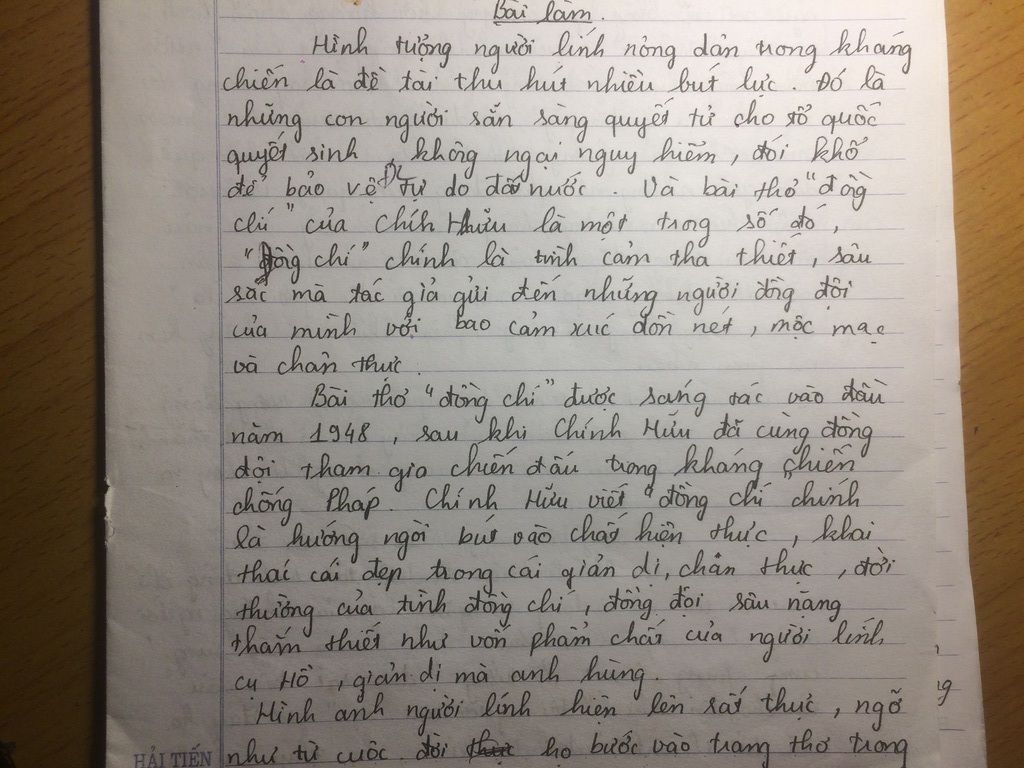 Bài làm.
Hình tượng người lính nông dân trong kháng
chiến là đề tài thu hút nhiều bút lực. Đó là
những con người sẵn sàng quyết tử cho tổ quốc
quyết sinh, không ngại nguy hiểm, đói khổ
để bảo vệ tự do đất nước. Và bài thơ "đồng
chí" của Chính Hữu là một trong số đó,
"đồng chí" chính là tình cảm tha thiết, sâu
sắc mà tác giả gửi đến những người đồng đội
của mình với bao cảm xúc dồn nét, mộc mạc
và chân thực.
Bài thơ "đồng chí" được sáng tác vào đầu
năm 1948, sau khi Chính Hữu đã cùng đồng
đội tham gia chiến đấu trong kháng chiến
chống Pháp. Chính Hữu viết "đồng chí" chính
là hướng ngòi bút vào chất hiện thực, khai
thác cái đẹp trong cái giản dị, chân thực, đời
thường của tình đồng chí, đồng đội sâu nặng
thắm thiết như vốn phẩm chất của người lính
cụ Hồ, giản dị mà anh hùng.
Hình anh người lính hiện lên rất thực, ngỡ
như từ cuộc đời họ bước vào trang thơ trong
HẢI TIẾN